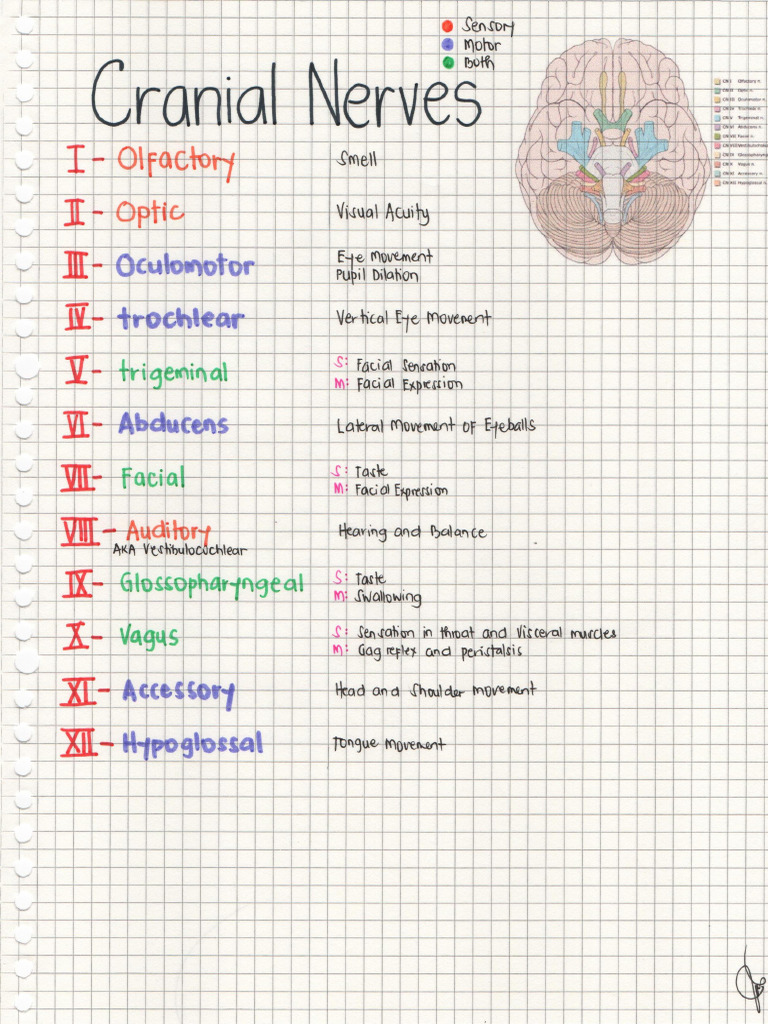 Sensory
Motor
Both
Cranial Nerves
I - Olfactory Smell
II - Optic Visual Acuity
III - Oculomotor Eye Movement
Pupil Dilation
IV - trochlear Vertical Eye Movement
V - trigeminal S: Facial Sensation
M: Facial Expression
VI - Abducens Lateral Movement of Eyeballs
VII - Facial S: Taste
M: Facial Expression
VIII - Auditory Hearing and Balance
AKA Vestibulocochlear
IX - Glossopharyngeal S: Taste
M: Swallowing
X - Vagus S: Sensation in throat and visceral muscles
M: Gag reflex and peristalsis
XI - Accessory Head and Shoulder movement
XII - Hypoglossal Tongue Movement
CN I Olfactory n.
CN II Optic n.
CN III Oculomotor n.
CN IV Trochlear n.
CN V Trigeminal n.
CN VI Abducens n.
CN VII Facial n.
CN VIII
CN IX
CN X Vagus n.
CN XI Accessory n.
CN XII Hypoglossal n.